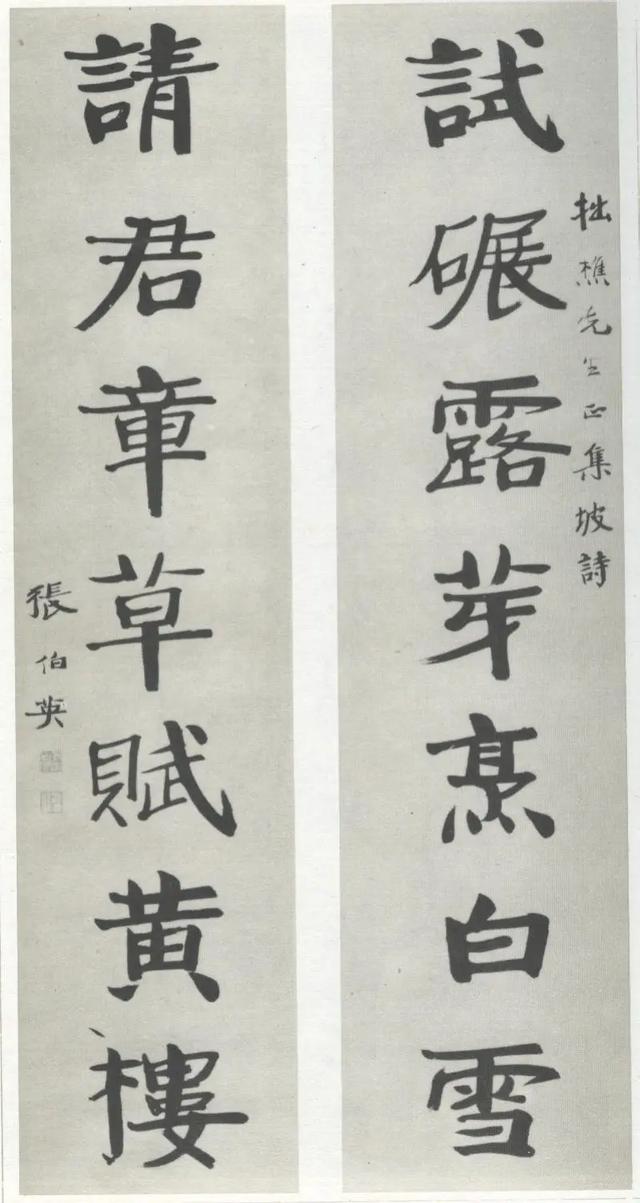 試碾露芽烹白雪
拙樵先生正集坡詩
請君章草賦黃樓
張伯英